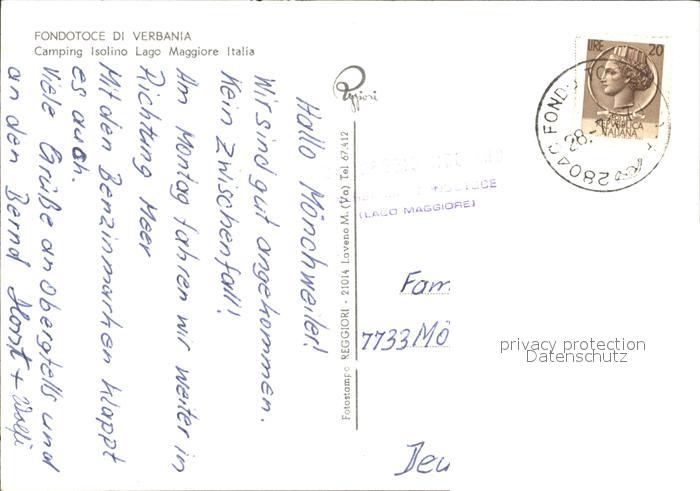 FONDOTOCE DI VERBANIA
Camping Isolino Lago Maggiore Italia
Reggiori
Hallo Mönchweiler!
Wir sind gut angekommen.
Kein Zwischenfall!
Am Montag fahren wir weiter in
Richtung Meer
Mit den Benzinmarken klappt
es auch.
Viele Grüße an Obergfells und
an den Bernd Horst + Wolfi
Fotostampa REGGIORI - 21014 Laveno M. (Va) Tel 67.412
LIRE 20
REPUBBLICA
ITALIANA
28040 FOND
28.
(LAGO MAGGIORE)
Fam
7733 Mö
privacy protection
Datenschutz
Deu